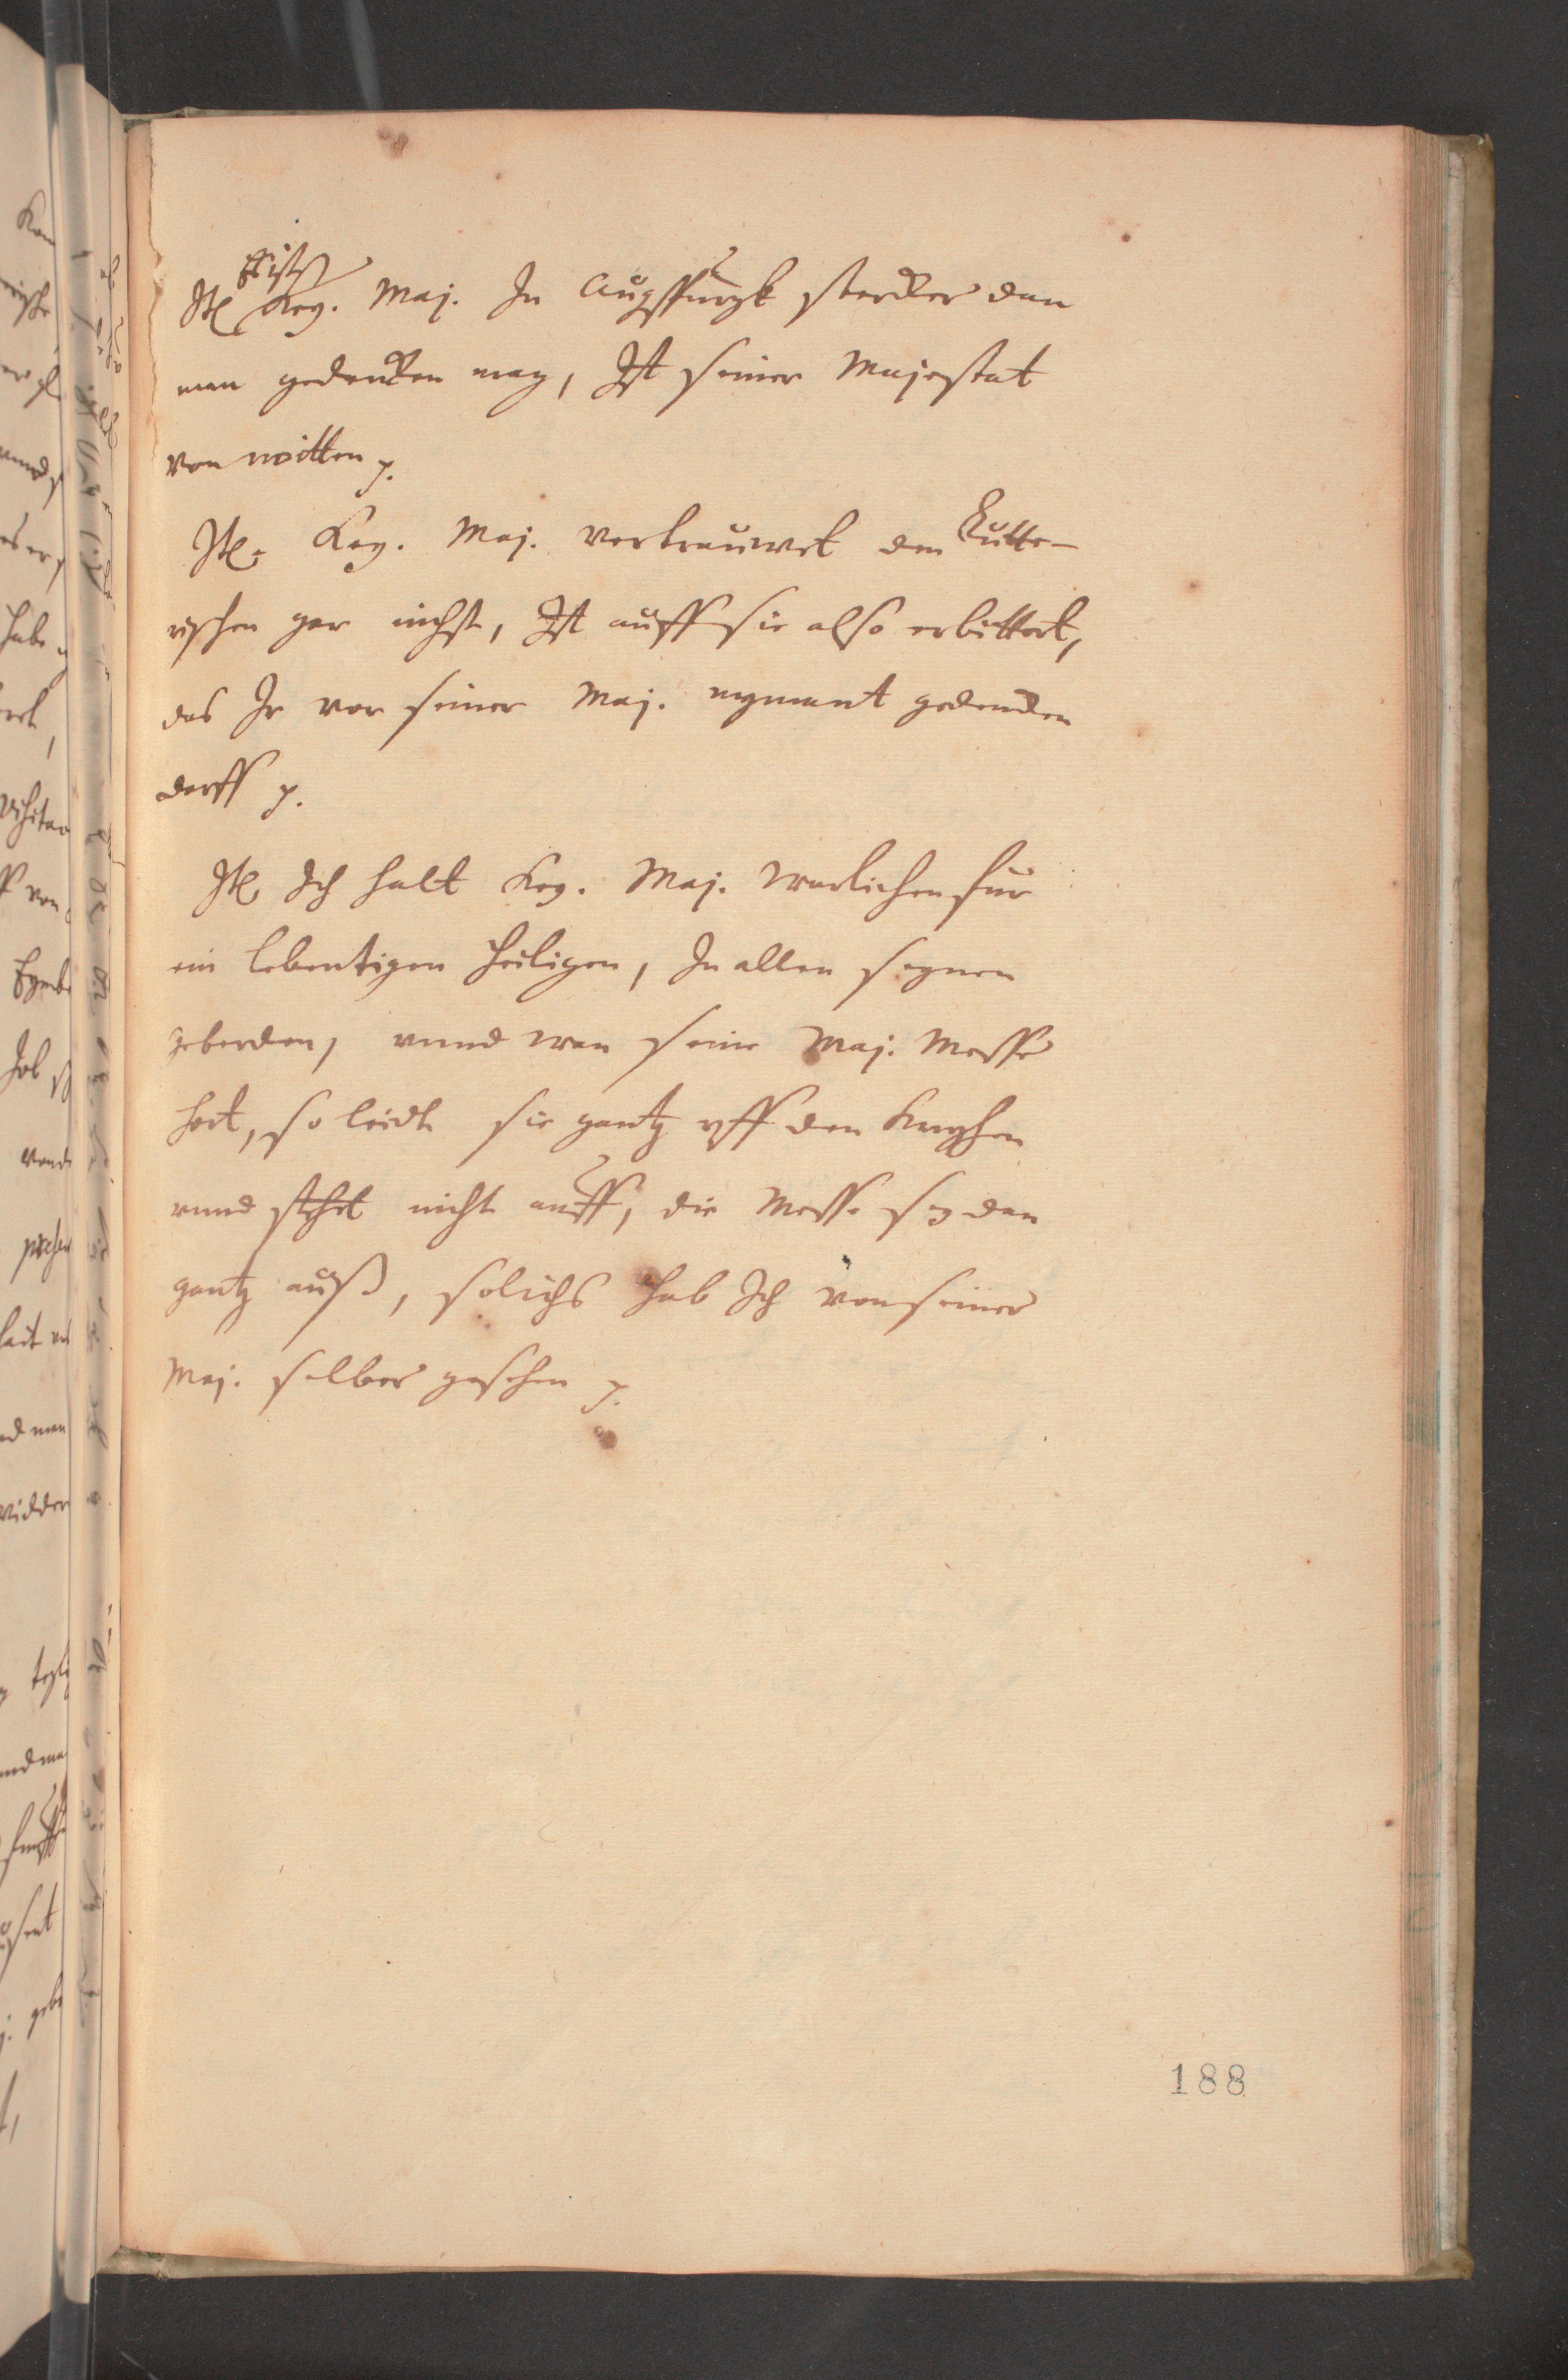 ist
Itē Key. Maj. In Augsspurgk stercker dan
man gedencken mag, Ist seiner Majestat
von noitten p.
Itē Key. Maj. vertrauwet den Lutte-
rischen gar nichst, Ist auff sie also erbittert,
das Ir vor seiner Maj. nymant gedencken
derff p.
Itē Ich halt Key. Maj. warlichen für
ein lebentigen heiligen, In allen seynen
geberden, unnd wan seine Maj. Messe
hort, so leidt sie gantz uff den Knyhen
unnd stehet nicht auff, die Messe sey dan
gantz auß, solichs hab Ich von seiner
Maj. selber gesehen p.
188